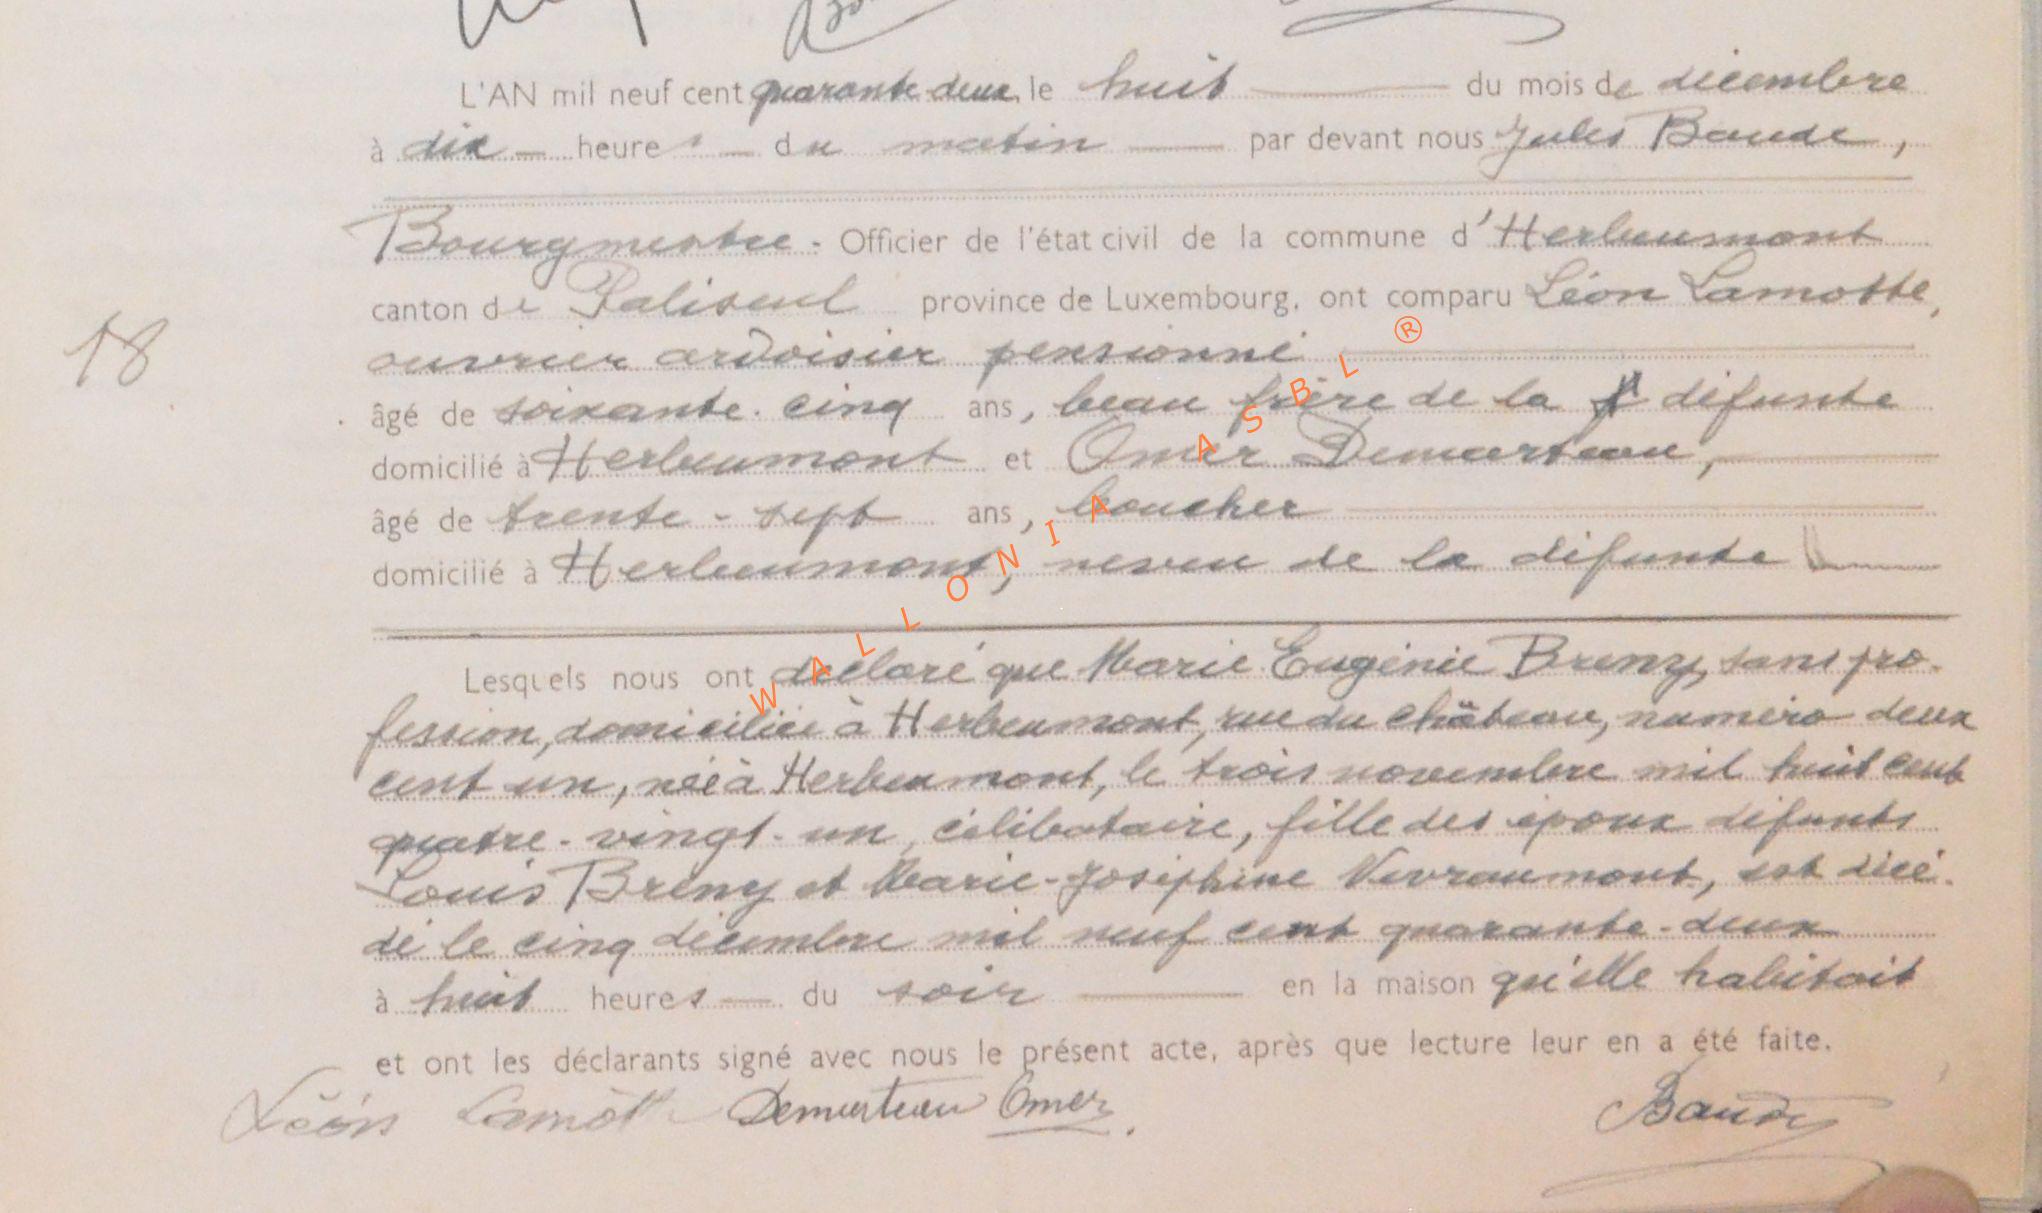 L'AN mil neuf cent quarante-deux, le huit du mois de décembre
à dix heures du matin par devant nous Jules Baude,
Bourgmestre - Officier de l'état civil de la commune d'Herbeumont
canton de Paliseul province de Luxembourg, ont comparu Léon Lamotte,
ouvrier ardoisier pensionné
18
âgé de soixante-cinq ans, beau frère de la défunte
domicilié à Herbeumont et Omer Demarteau,
âgé de trente-sept ans, boucher
domicilié à Herbeumont, neveu de la défunte
Lesquels nous ont déclaré que Marie Eugénie Breny, sans pro-
fession, domiciliée à Herbeumont, rue du château, numéro deux
cent un, née à Herbeumont, le trois novembre mil huit cent
quatre-vingt-un, célibataire, fille des époux défunts
Louis Breny et Marie-Joséphine Nevraumont, est décé-
dé le cinq décembre mil neuf cent quarante-deux
à huit heures du soir en la maison qu'elle habitait
et ont les déclarants signé avec nous le présent acte, après que lecture leur en a été faite.
Léon Lamotte Demarteau Omer. Baude
WALLONIA ASBL ®